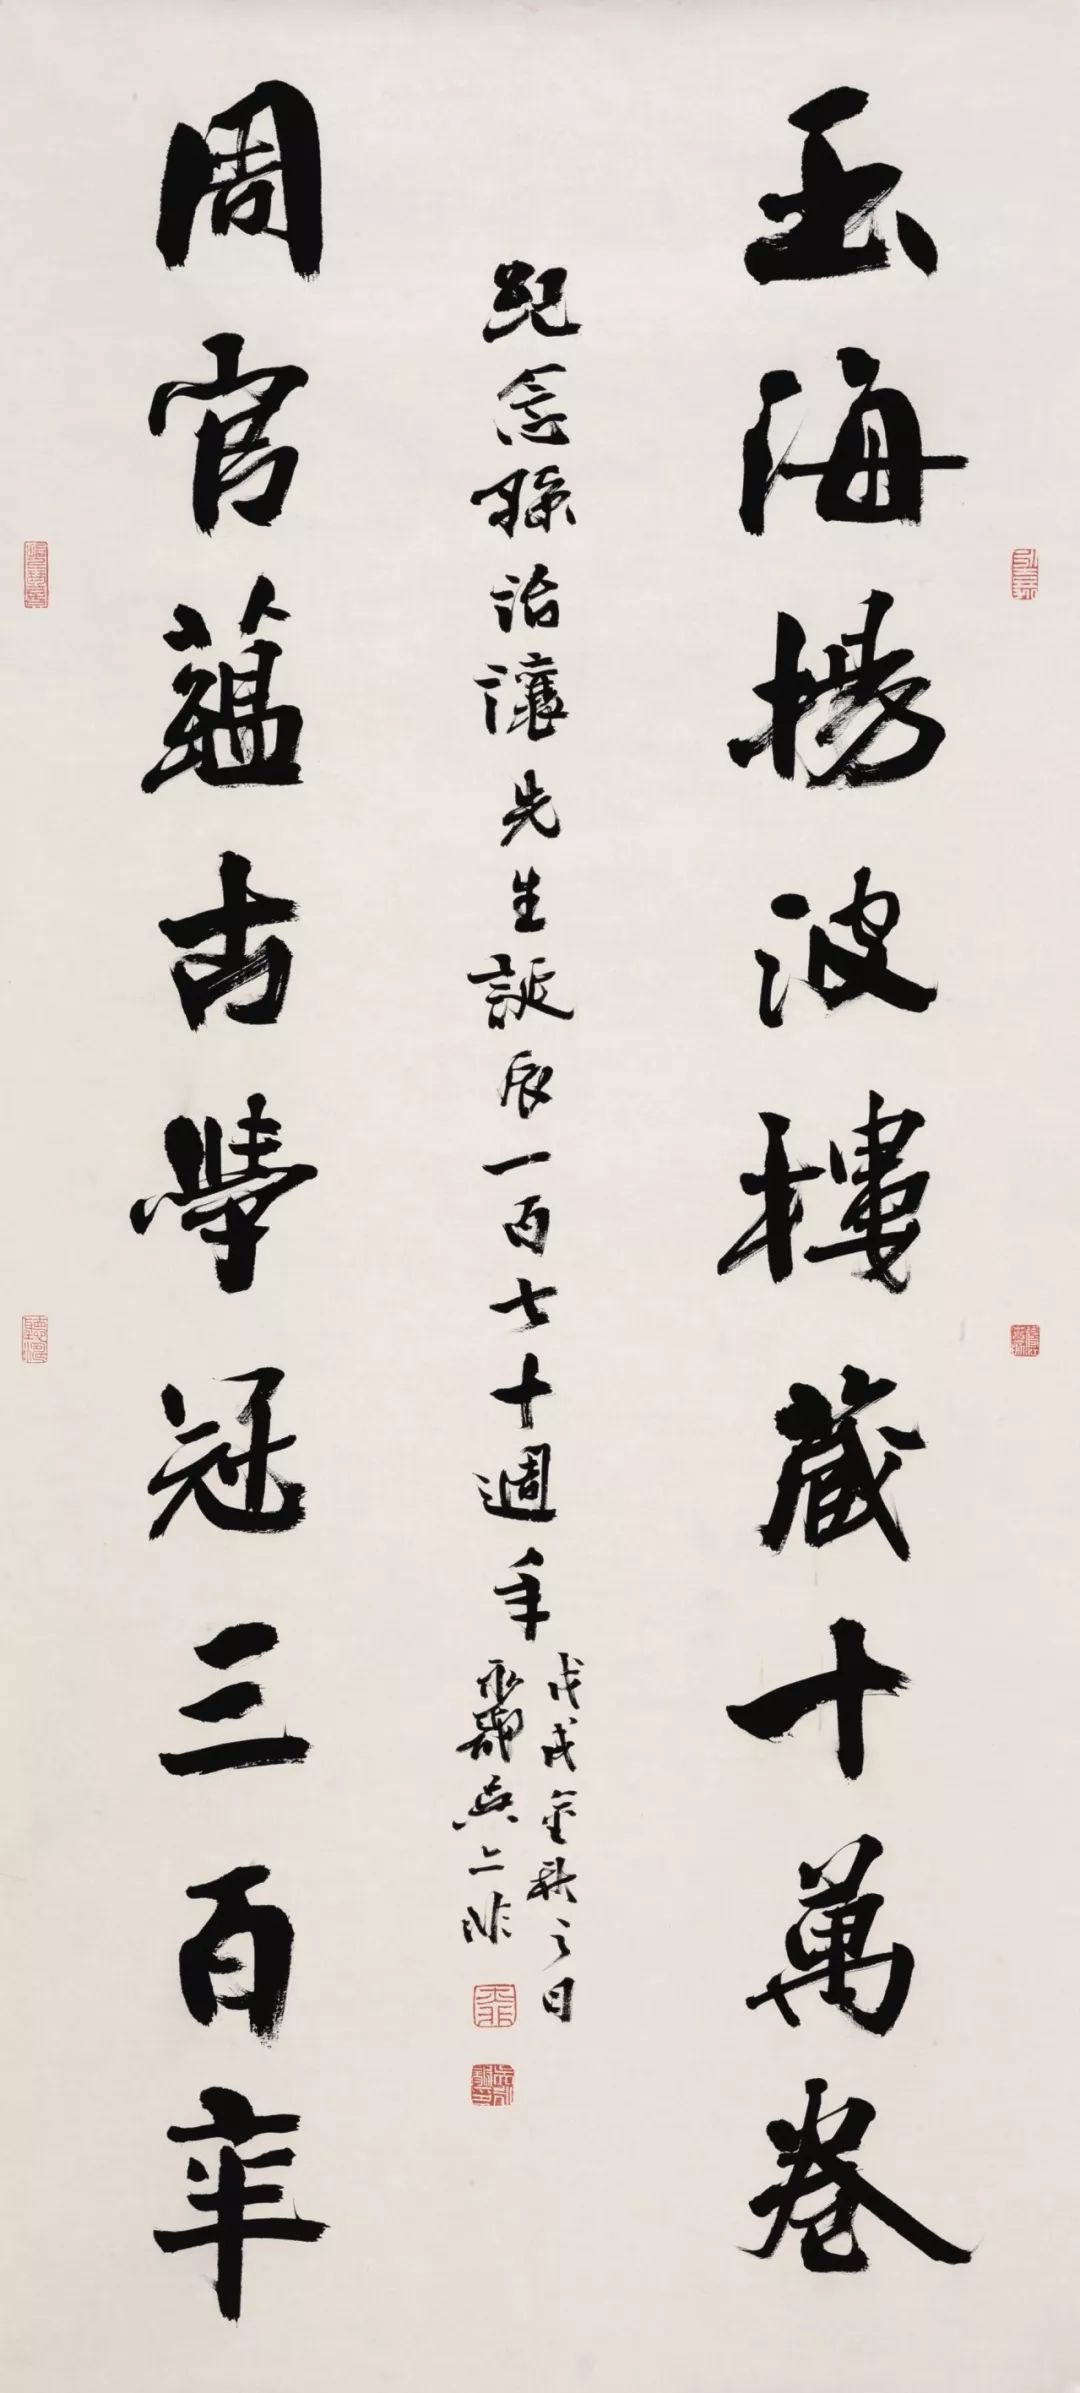 玉海揚波樓藏十萬卷
紀念孫詒讓先生誕辰一百七十週年
戊戌金秋之日
永嘉吳亞非
周官蘊古學冠三百年